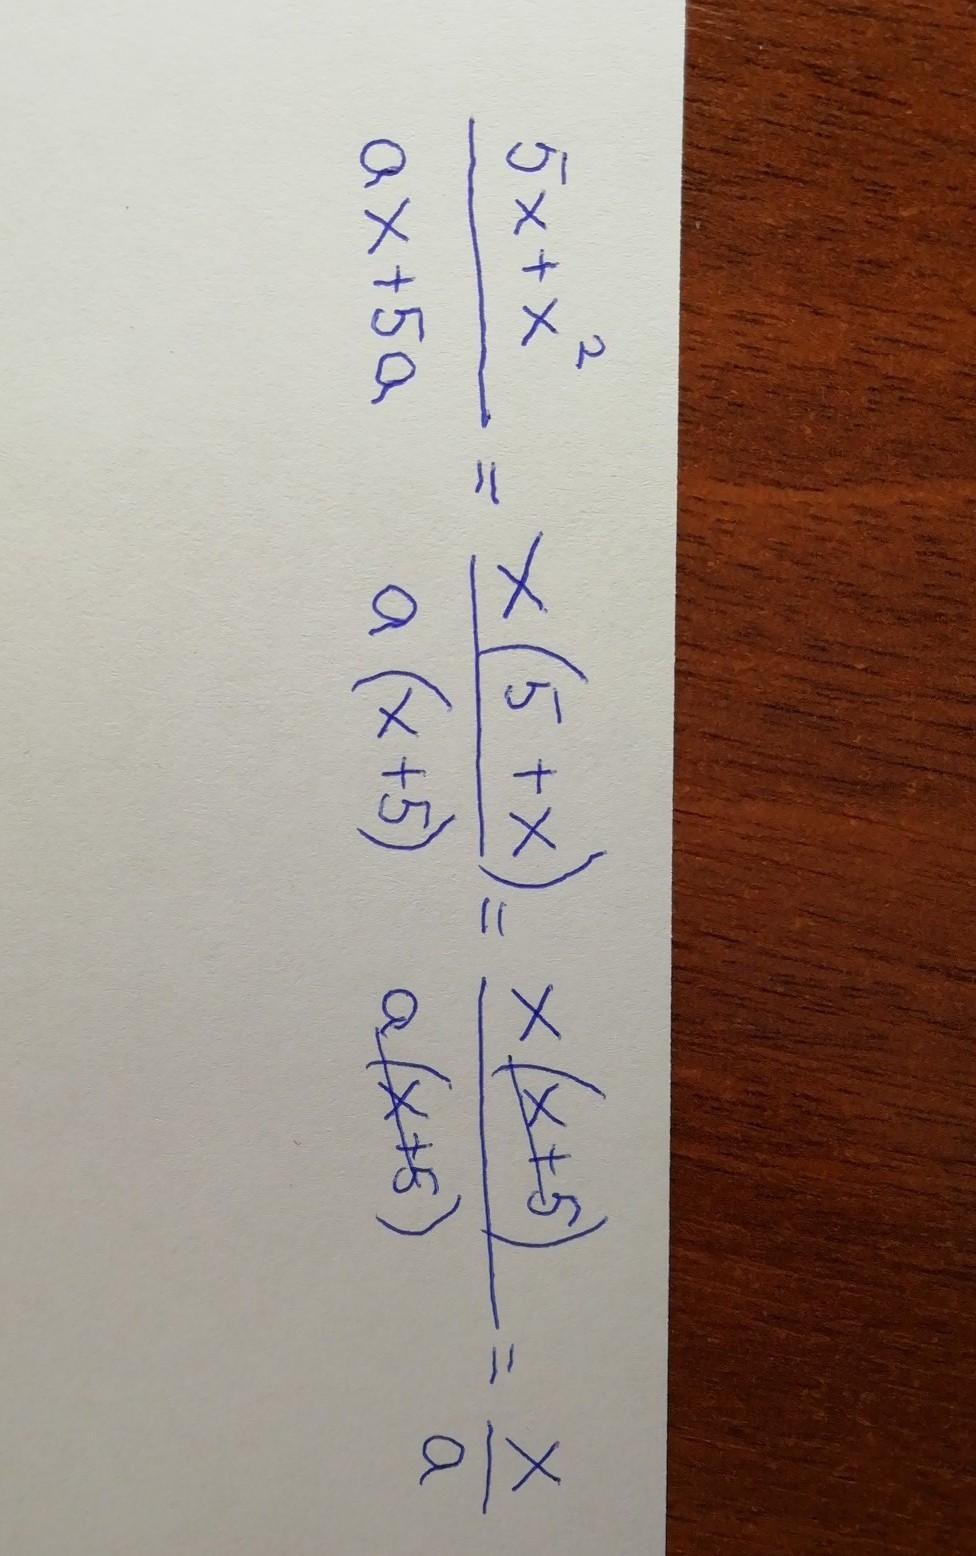 5x+x² / ax+5a = x(5+x) / a(x+5) = x(x+5) / a(x+5) = x / a